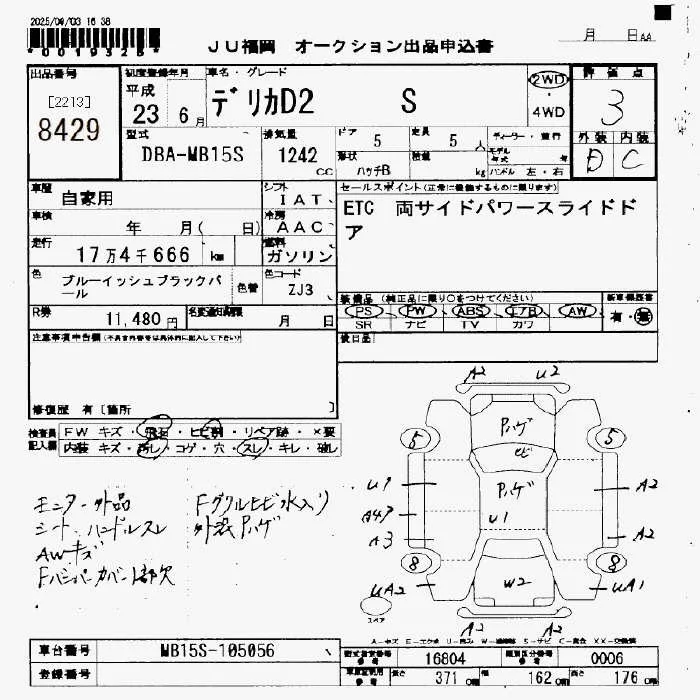 2025/04/03 16 38
*0019328*
JU福岡 オークション出品申込書
月 日 AA
出品番号
[2213]
8429
初度登録年月
平成
23 6月
車名・グレード
デリカD2 S
2WD
4WD
評価点
3
外装 内装
D C
型式
DBA-MB15S
排気量
1242 CC
ドア 5
定員 5 人
形状 ハッチB
積載 kg
ディーラー・並行
モデル年式 年
ハンドル 左・右
車歴 自家用
シフト IAT
セールスポイント(正常に機能するものに限ります)
車検 年 月( 日)
冷房 AAC
ETC 両サイドパワースライドド
ア
走行 17万4千666 km
燃料 ガソリン
色 ブルーイッシュブラックパ
ール
色替
色コード
ZJ3
装備品(純正品に限り○をつけてください)
PS PW ABS エアB AW
SR ナビ TV カワ
新車保証書
有・無
R券 11,480円
名変通知期限 月 日
後日品
注意事項申告欄(不具合内容等は具体的に記入して下さい)
修復歴 有〔箇所 〕
検査員
記入欄
FW キズ・飛石・ヒビ割・リペア跡・×要
内装 キズ・汚レ・コゲ・穴・スレ・キレ・破レ
モニター外品
シート、ハンドルスレ
AWキズ
Fバンパーカバー1部欠
Fグリルヒビ水入り
外装Pハゲ
A2 U2
Pハゲ
ヒビ
5 5
Pハゲ
U1 U1 A2
A47
A3 A2
8 8
UA2 W2 UA1
スペア
A2 A2
車台番号 MB15S-105056
登録番号
型式指定番号 16804
類別区分番号 0006
長さ 371 cm 幅 162 cm 高さ 176 cm